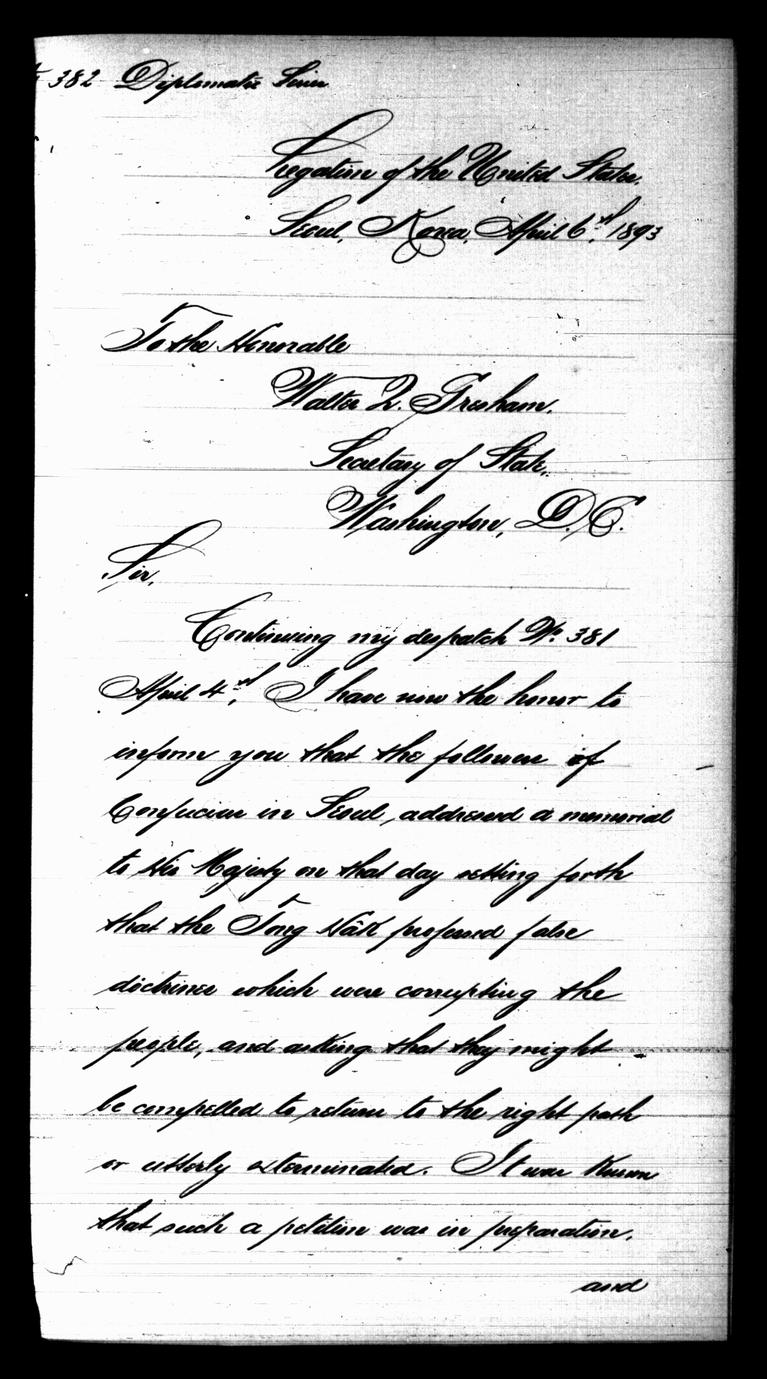 382 Diplomatic Series
Legation of the United States.
Seoul, Korea, April 6th, 1893
To the Honorable
Walter Q. Gresham.
Secretary of State.
Washington, D.C.
Sir,
Continuing my despatch No. 381
April 4th, I have now the honor to
inform you that the followers of
Confucius in Seoul, addressed a memorial
to His Majesty on that day setting forth
that the Tong Hâk professed false
doctrines which were corrupting the
people, and asking that they might
be compelled to return to the right path
or utterly exterminated. It was known
that such a petition was in preparation.
and